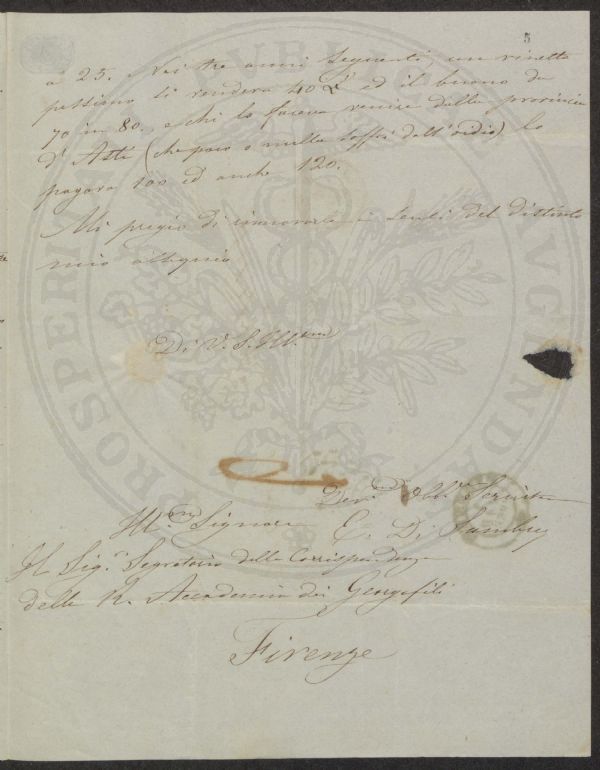 5
a 25. Nei tre anni seguenti, un vinetto
pessimo si vendeva 40 £ ed il buono da
70 in 80, e chi lo faceva venire dalla provincia
d'Asti (che poco o nulla soffrì dell'oidio) lo
pagava 100 ed anche 120.
Mi pregio di rinnovarle i sensi del distinto
mio ossequio
Di V. S. Ill.ma
Dev.mo Obb. Servitore
E. Di Sambuy
Ill.mo Signore
Il Sig.r Segretario della Corrispondenza
della R. Accademia dei Georgofili
Firenze
PROSPERITATI PVBLICAE AVGENDAE